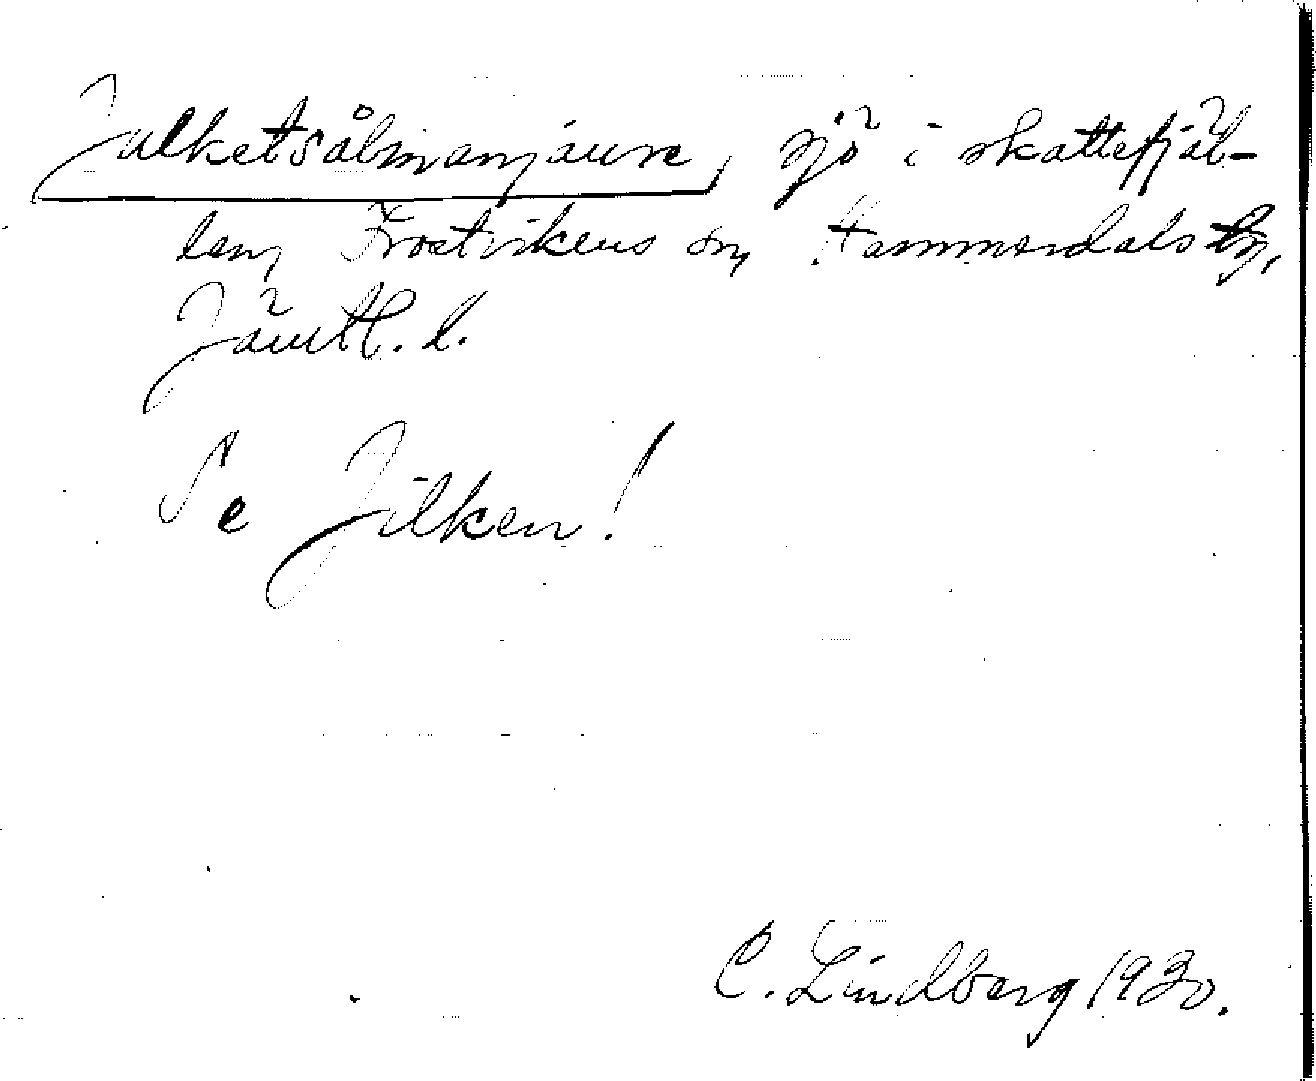 Jilketsålmanjaure, sjö i skattefjäl-
len, Frostvikens sn, Hammerdals tg,
Jämtl. l.
Se Jilken!
C. Lindberg 1930.